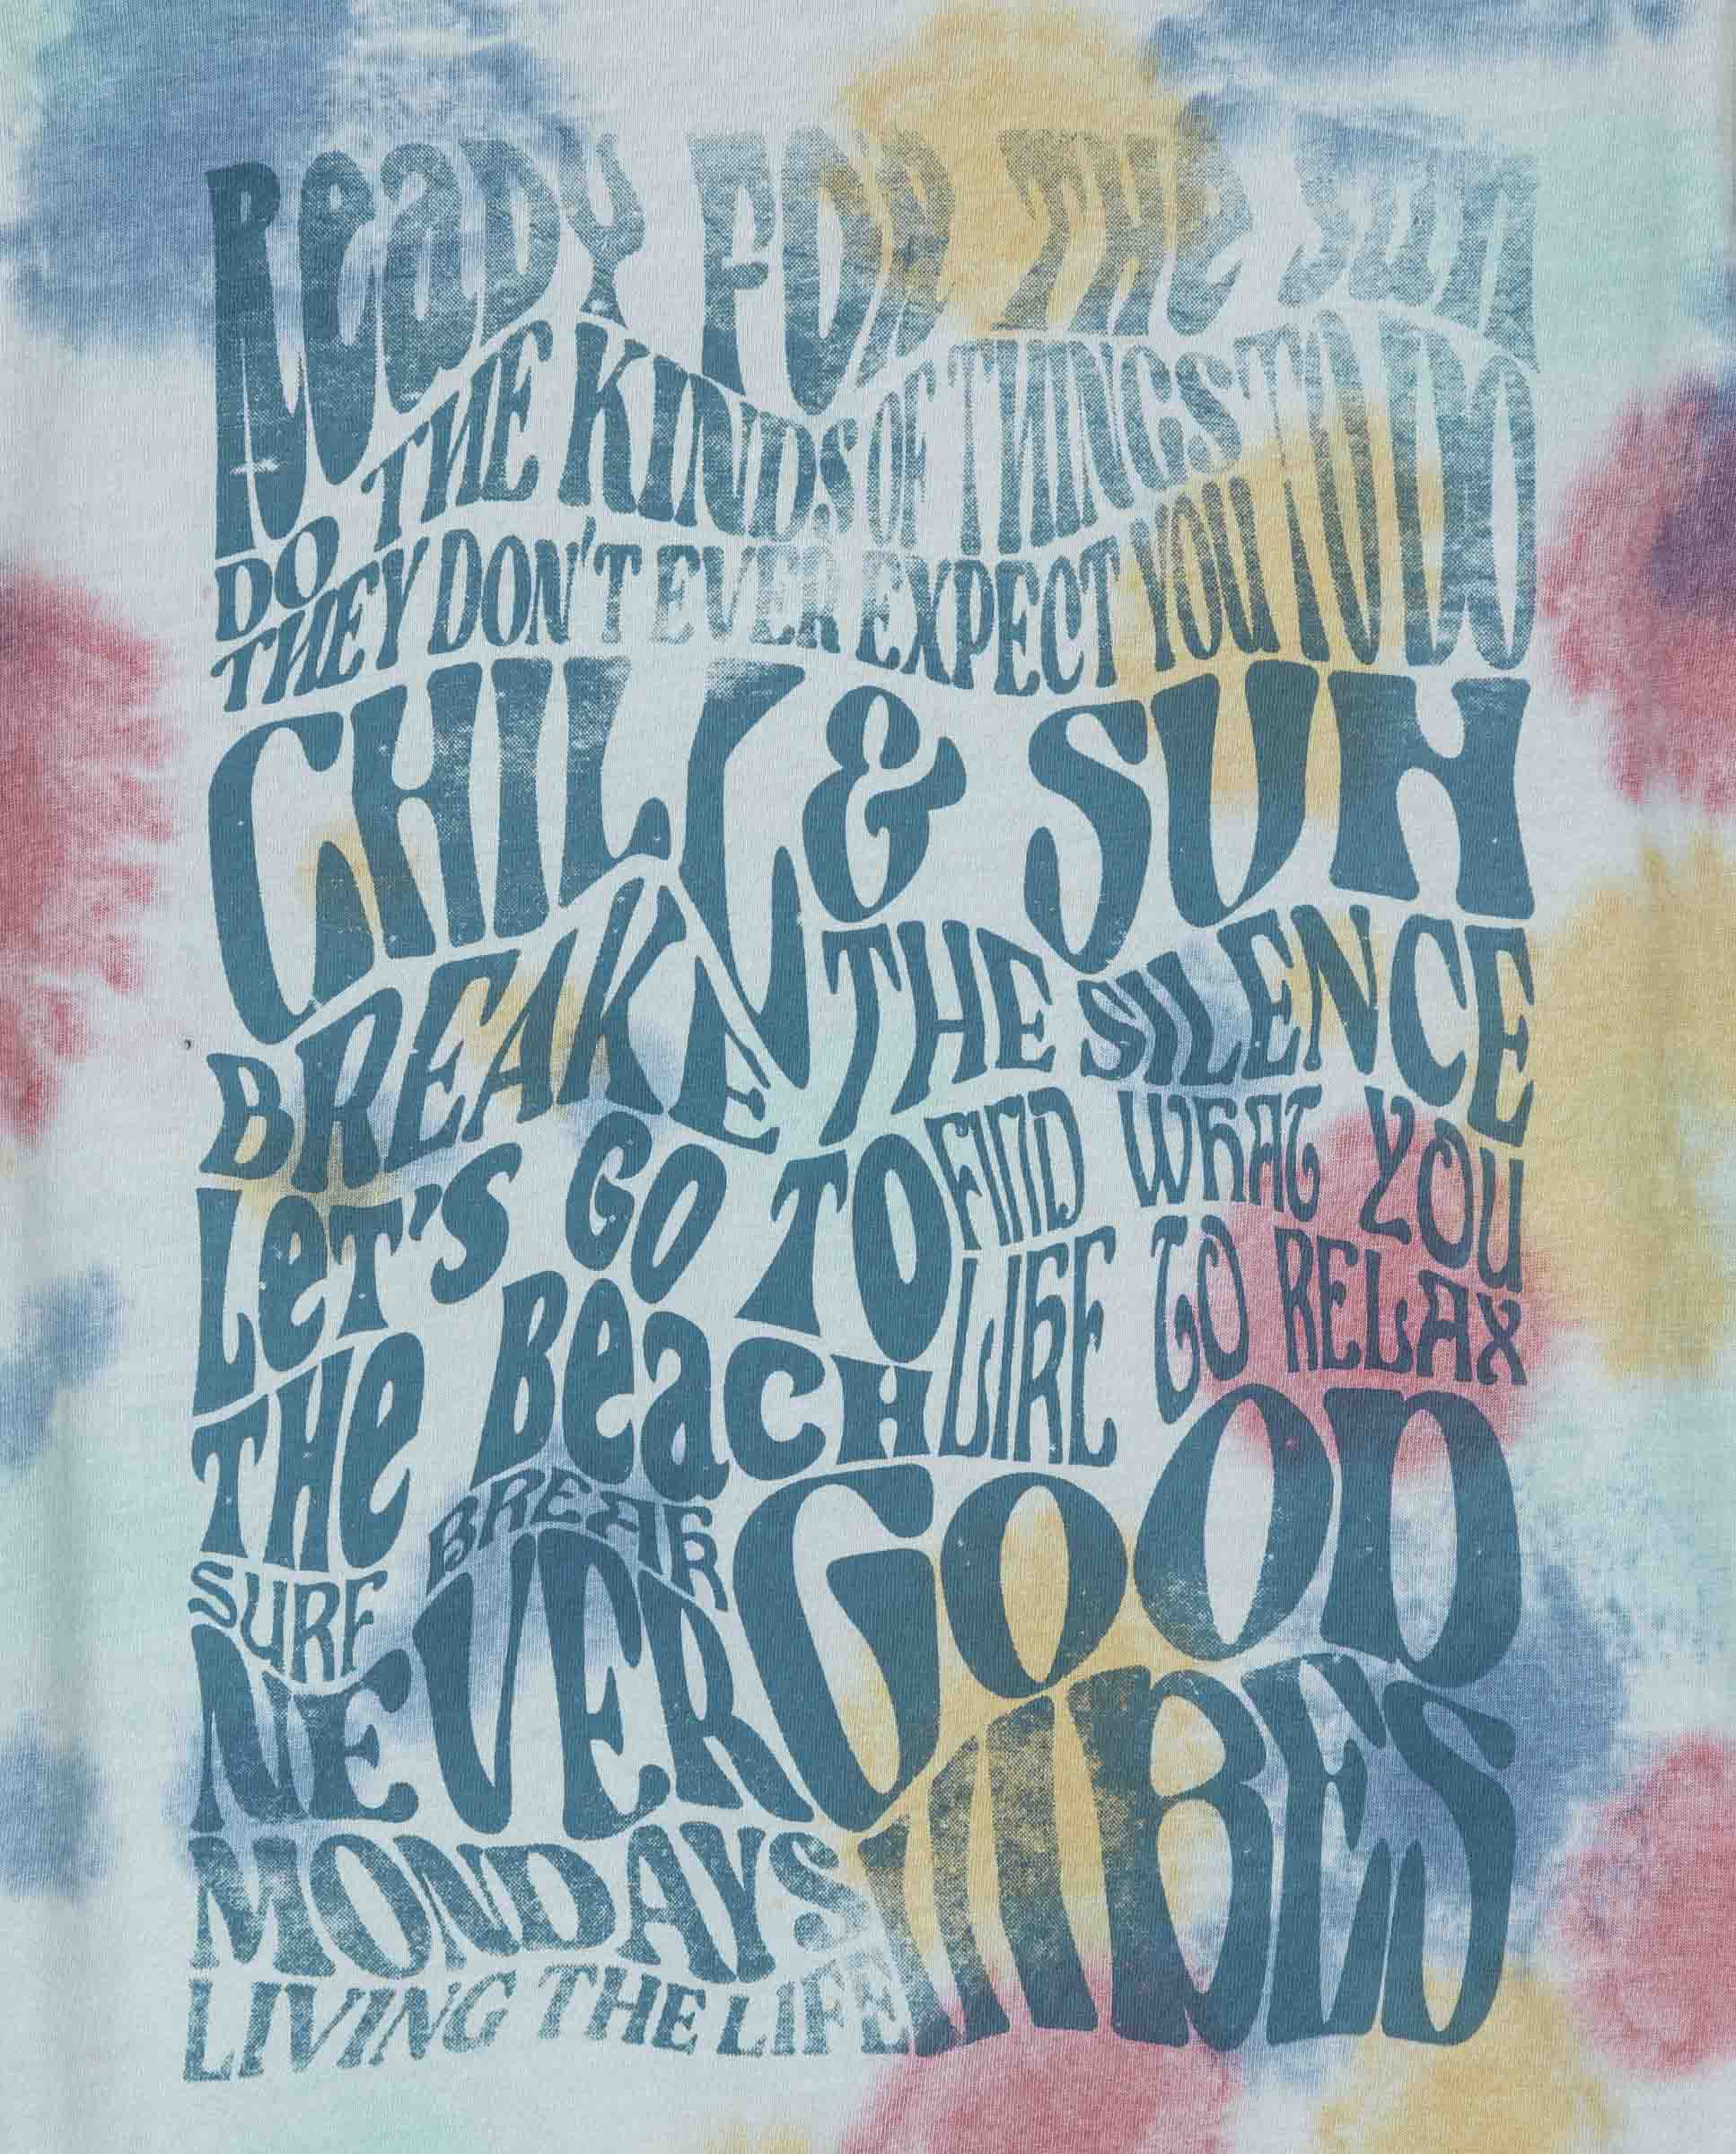 ReaDY FOR THE SUN
DO THE KINDS OF THINGS TO DO
THEY DON'T EVER EXPECT YOU TO DO
CHILL & SUN
BREAK THE SILENCE
LeT'S GO TO
THe BeaCH
FIND WHAT YOU
LIKE TO RELAX
SURF BREAK
NEVER
MONDAYS
LIVING THE LIFE
GOOD
VIBES